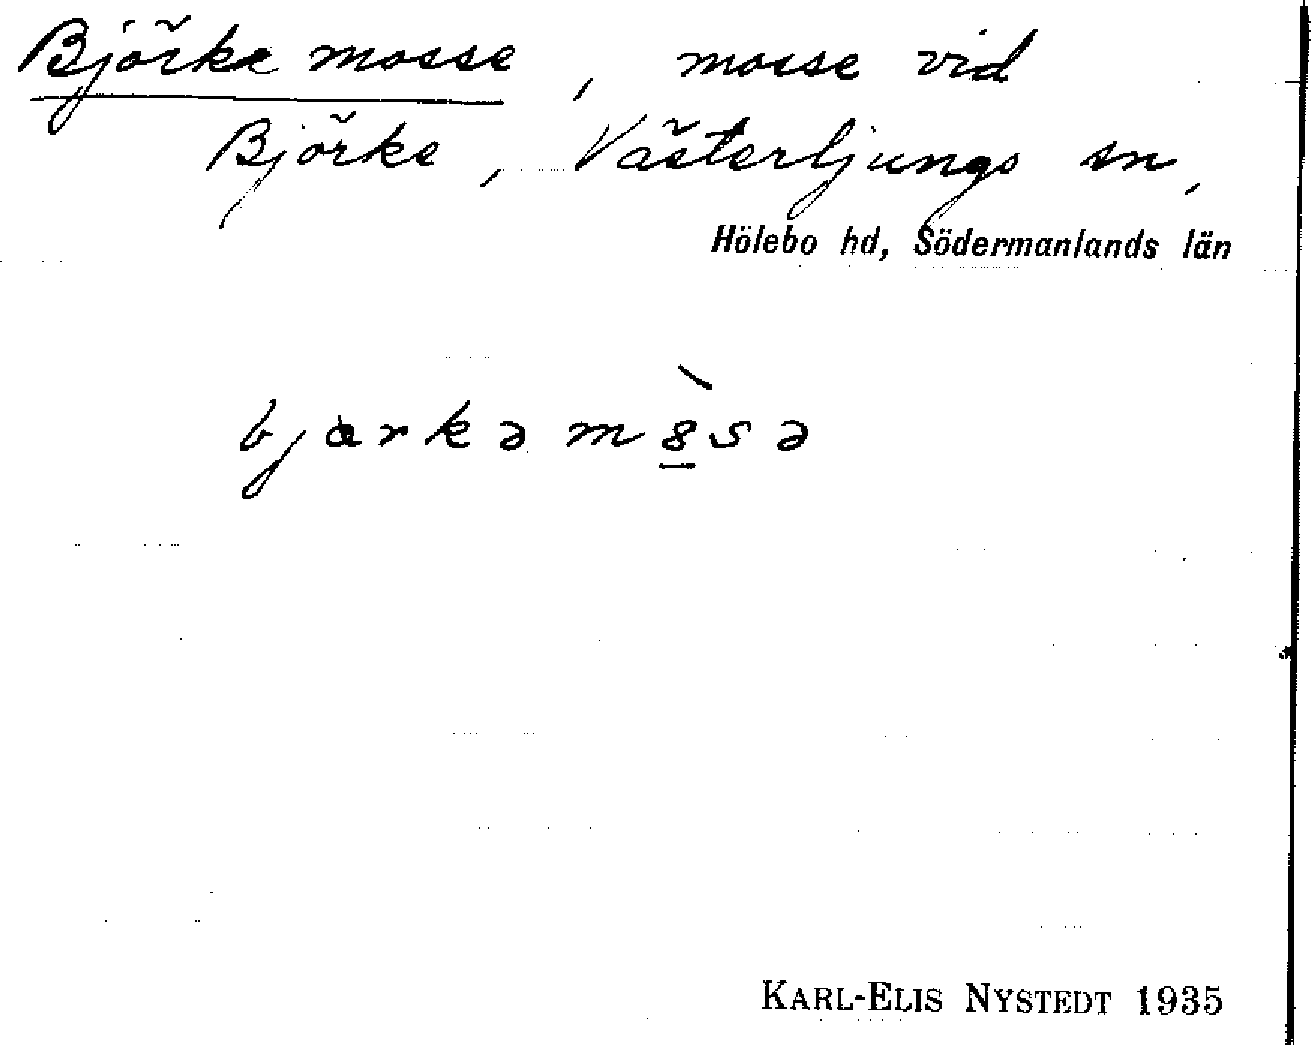 Björke mosse, mosse vid
Björke, Västerljungs sn,
Hölebo hd, Södermanlands län
bjɑrkəm8̲̀sə
KARL-ELIS NYSTEDT 1935